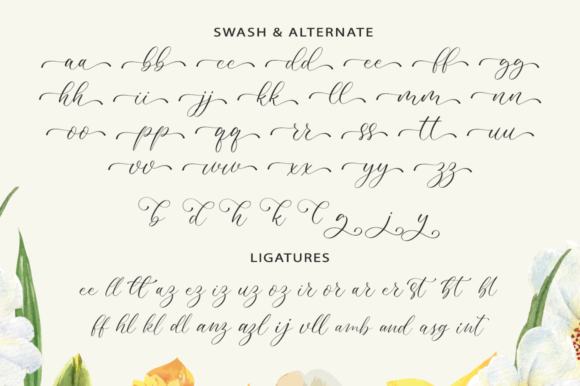 SWASH & ALTERNATE
aa bb cc dd ee ff gg
hh ii jj kk ll mm nn
oo pp qq rr ss tt uu
vv ww xx yy zz
b d h k l g j y
LIGATURES
ee ll tt az ez iz uz oz ir or ar er st bt bl
ff hl kl dl anz azl ij vll amb and asg int